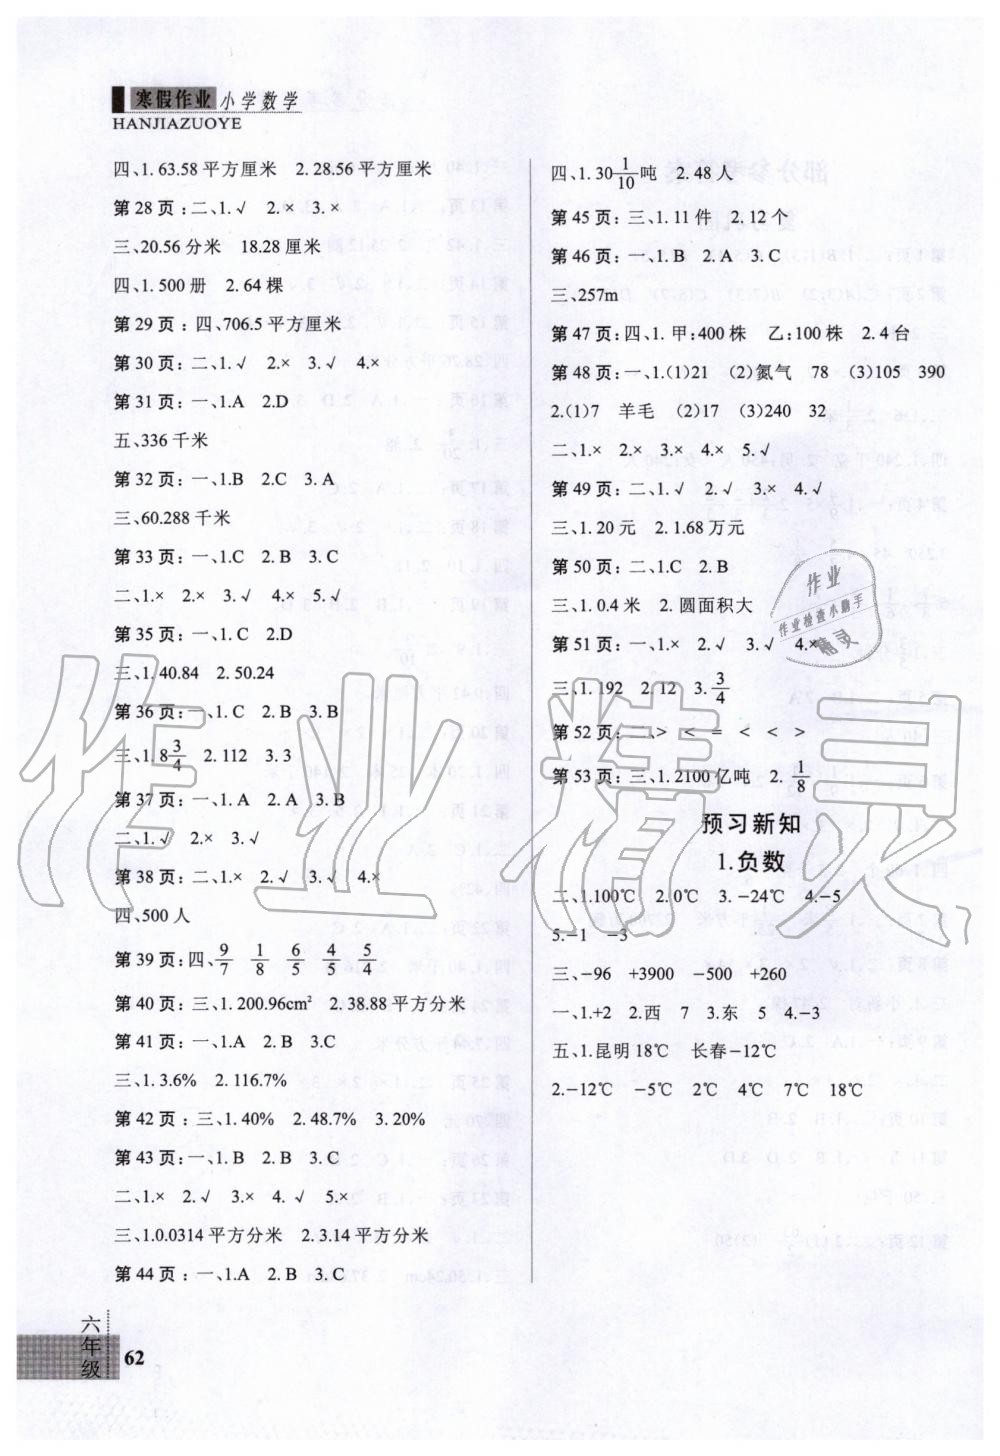 寒假作业 小学数学
HANJIAZUOYE
四、1.63.58平方厘米 2.28.56平方厘米
第28页:二、1.√ 2.× 3.×
三、20.56分米 18.28厘米
四、1.500册 2.64棵
第29页:四、706.5平方厘米
第30页:二、1.√ 2.× 3.√ 4.×
第31页:一、1.A 2.D
五、336千米
第32页:一、1.B 2.C 3.A
三、60.288千米
第33页:一、1.C 2.B 3.C
二、1.× 2.× 3.√ 4.× 5.√
第35页:一、1.C 2.D
三、1.40.84 2.50.24
第36页:一、1.C 2.B 3.B
三、1.8 3/4 2.112 3.3
第37页:一、1.A 2.A 3.B
二、1.√ 2.× 3.√
第38页:二、1.× 2.√ 3.√ 4.×
四、500人
第39页:四、9/7 1/8 6/5 4/5 5/4
第40页:三、1.200.96cm² 2.38.88平方分米
第41页:一、1.A 2.B 3.C
三、1.3.6% 2.116.7%
第42页:三、1.40% 2.48.7% 3.20%
第43页:一、1.B 2.B 3.C
二、1.× 2.√ 3.× 4.√ 5.×
三、1.0.0314平方分米 2.3.14平方分米
第44页:一、1.A 2.B 3.C
四、1.30 1/10吨 2.48人
第45页:三、1.11件 2.12个
第46页:一、1.B 2.A 3.C
三、257m
第47页:四、1.甲:400株 乙:100株 2.4台
第48页:一、1.(1)21 (2)氮气 78 (3)105 390
2.(1)7 羊毛 (2)17 (3)240 32
二、1.× 2.× 3.× 4.× 5.√
第49页:二、1.√ 2.√ 3.× 4.√
三、1.20元 2.1.68万元
第50页:二、1.C 2.B
三、1.0.4米 2.圆面积大
第51页:一、1.× 2.√ 3.√ 4.×
三、1.192 2.12 3.3/4
第52页:二、> < = < < >
第53页:三、1.2100亿吨 2.1/8
预习新知
1.负数
二、1.100℃ 2.0℃ 3.-24℃ 4.-5
5.-1 -3
三、-96 +3900 -500 +260
一、1.+2 2.西 7 3.东 5 4.-3
五、1.昆明18℃ 长春-12℃
2.-12℃ -5℃ 2℃ 4℃ 7℃ 18℃
作业
作业检查小助手
精灵
作业精灵
六年级
62